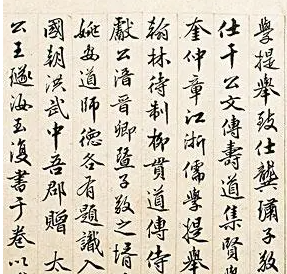 學提舉致仕龔璛子敬
仕干公文傳壽道集賢
奎仲章江浙儒學提舉
翰林待制柳貫道傳侍
獻公淯晉卿暨子敬之壻
姚安道師德各有題識入
國朝洪武中吾郡贈太
公王璲汝玉復書于卷以